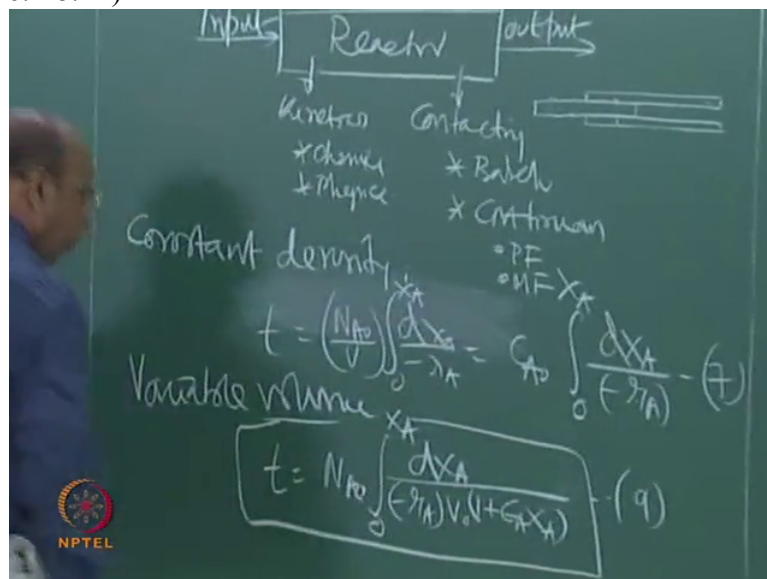 Input Reactor output
Kinetics Contacting
*Chemical *Batch
*Physical *Continuous
•PF
•MF
Constant density
t = (N_A0/V) ∫_0^{X_A} dX_A/(-r_A) = C_A0 ∫_0^{X_A} dX_A/(-r_A) - (7)
Variable volume
t = N_A0 ∫_0^{X_A} dX_A/((-r_A)V_0(1+ε_A X_A)) - (9)
NPTEL